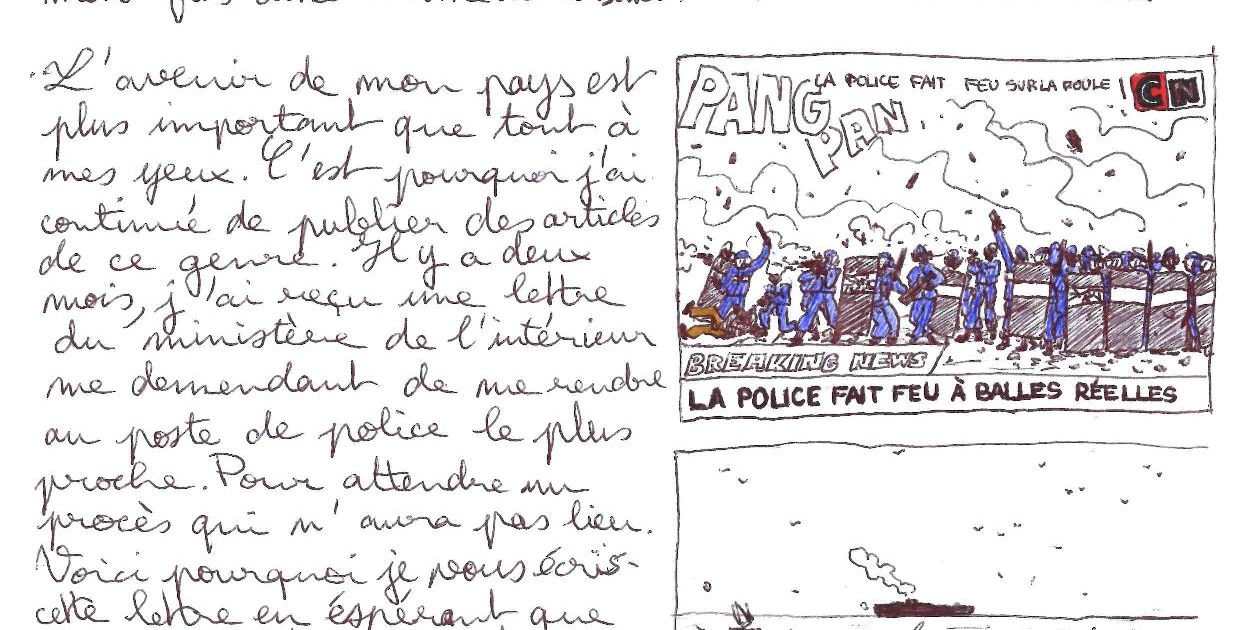 L'avenir de mon pays est
plus important que tout à
mes yeux. C'est pourquoi j'ai
continué de publier des articles
de ce genre. Il y a deux
mois, j'ai reçu une lettre
du ministère de l'intérieur
me demendant de me rendre
au poste de police le plus
proche. Pour attendre un
procès qui n'aura pas lieu.
Voici pourquoi je vous écris
cette lettre en éspérant que
PANG
PAN
LA POLICE FAIT FEU SUR LA FOULE !
CN
BREAKING NEWS
LA POLICE FAIT FEU À BALLES RÉELLES